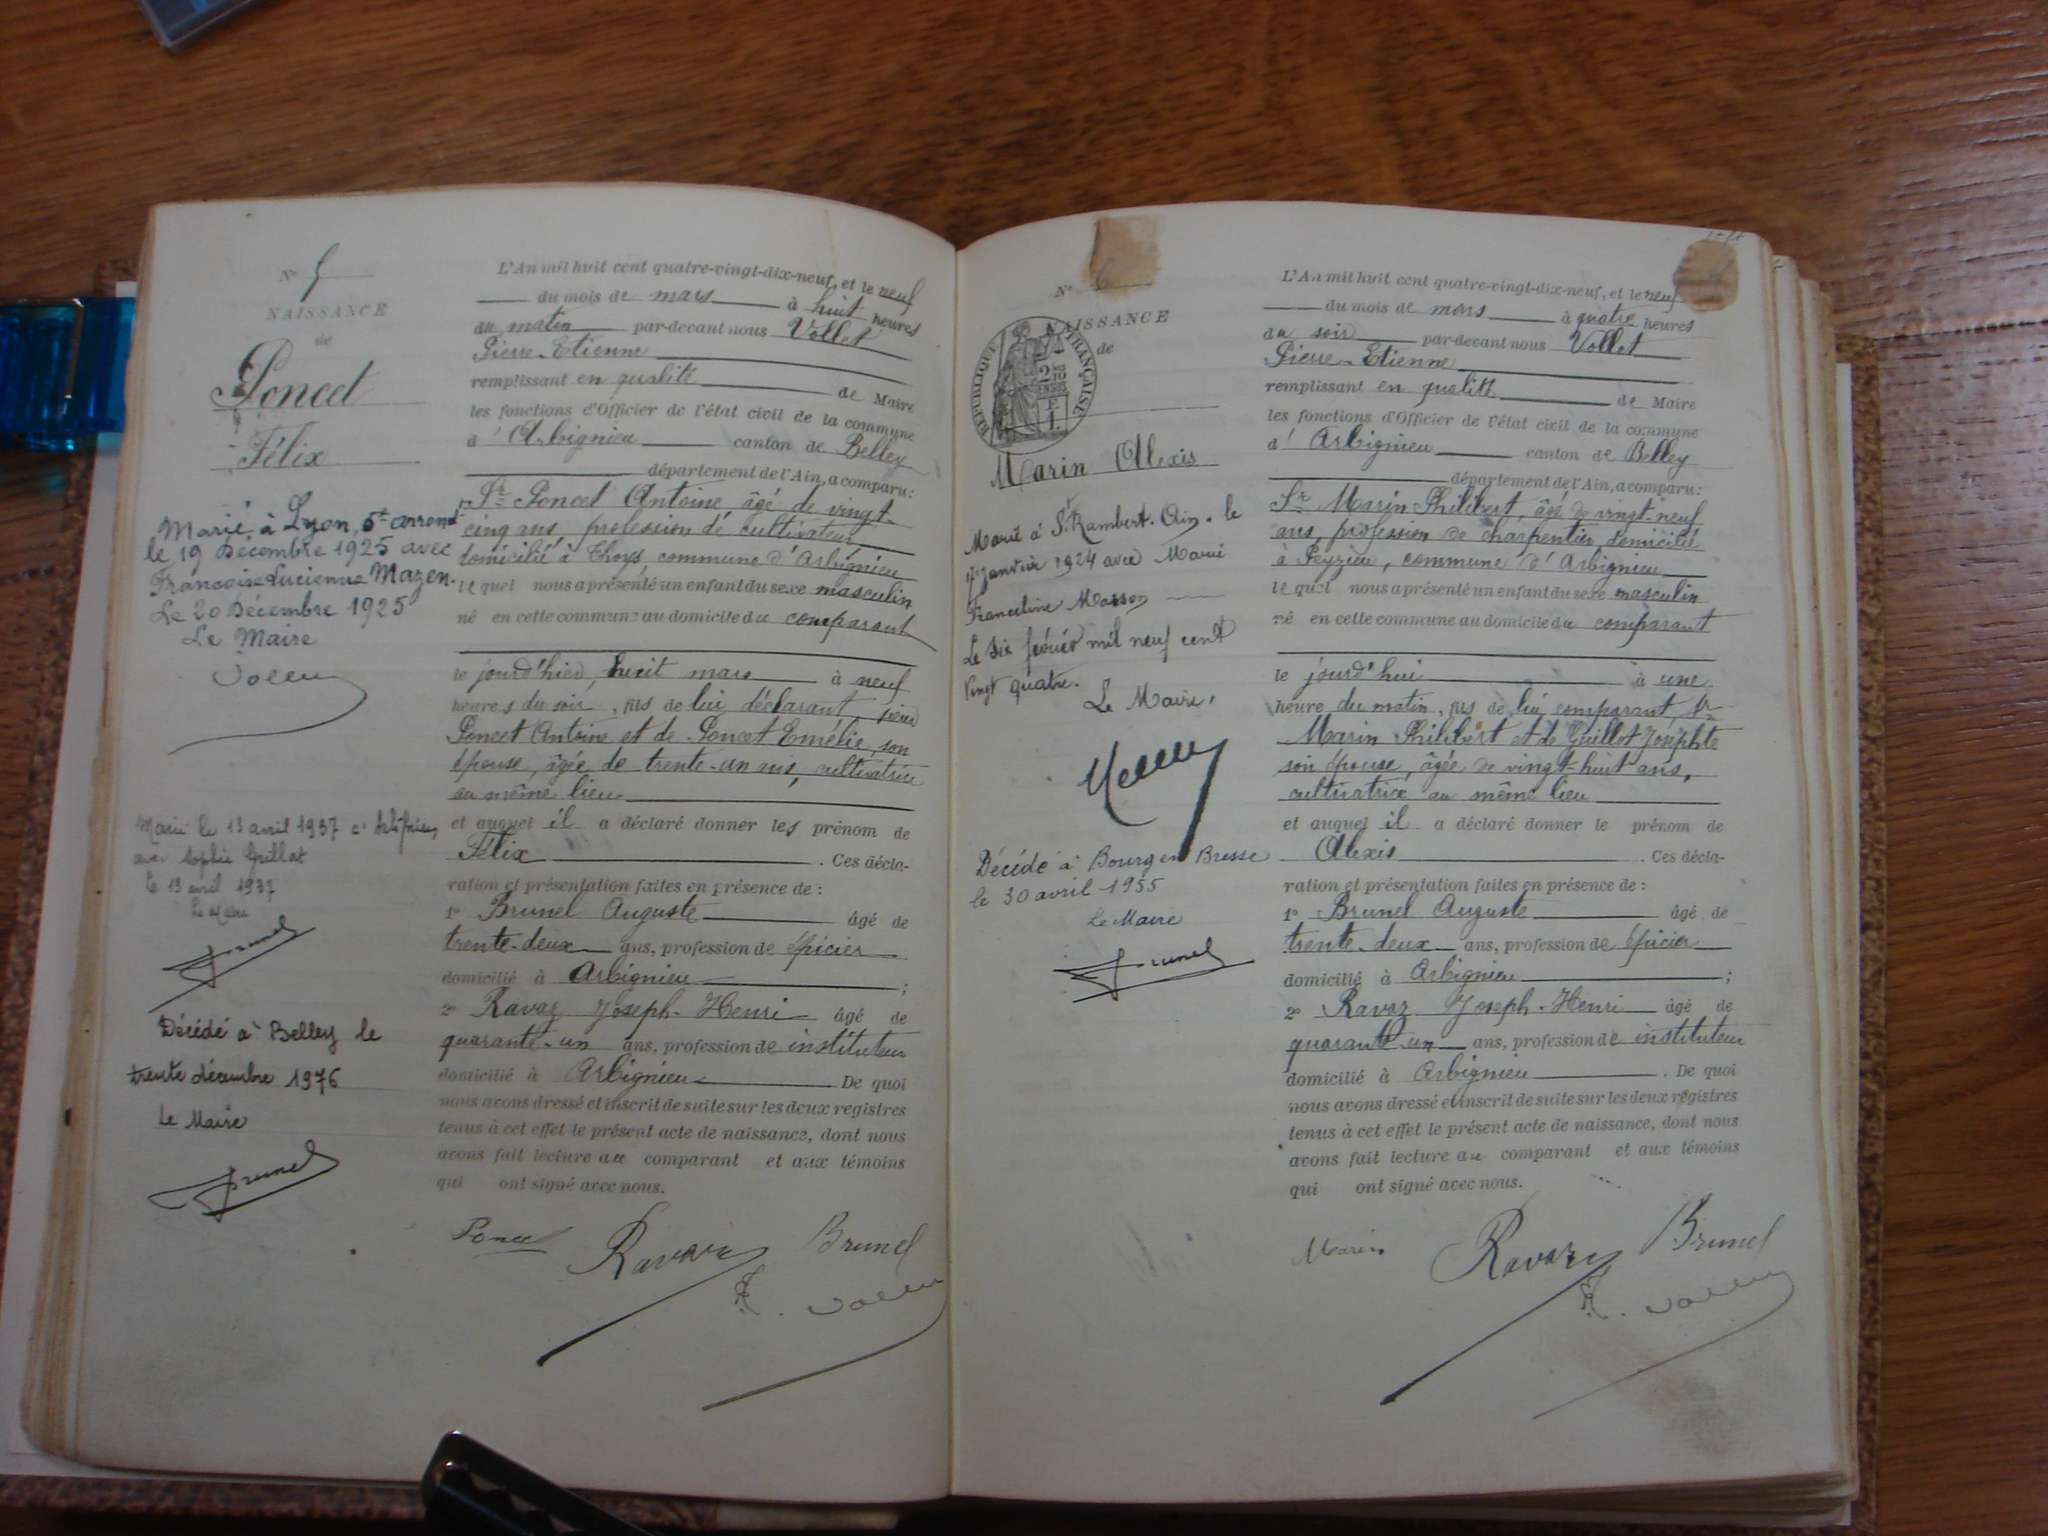 N° 5
NAISSANCE
de
Poncet
Félix
Marié à Lyon, 5e arrond
le 19 Décembre 1925 avec
Françoise Lucienne Mazen.
Le 20 Décembre 1925
Le Maire
Marié le 13 avril 1937 à Arbignieu
avec Sophie Grillet
le 13 avril 1937
Le Maire
Brunel
Décédé à Belley le
trente décembre 1976
Le Maire
Brunel
L'An mil huit cent quatre-vingt-dix-neuf, et le neuf
du mois de mars à huit heures
du matin par-devant nous Vollet
Pierre-Etienne
remplissant en qualité de Maire
les fonctions d'Officier de l'état civil de la commune
d'Arbignieu canton de Belley
département de l'Ain, a comparu:
Sr Poncet Antoine, âgé de vingt-
cinq ans, profession de cultivateur
domicilié à Thoys, commune d'Arbignieu
lequel nous a présenté un enfant du sexe masculin
né en cette commune au domicile du comparant
le jourd'hier, huit mars à neuf
heures du soir, fils de lui déclarant, sieur
Poncet Antoine et de Poncet Emélie, son
épouse, âgée de trente-un ans, cultivatrice
au même lieu
et auquel il a déclaré donner les prénom de
Félix. Ces décla-
ration et présentation faites en présence de:
1° Brunel Auguste âgé de
trente-deux ans, profession de épicier
domicilié à Arbignieu;
2° Ravaz Joseph-Henri âgé de
quarante-un ans, profession de instituteur
domicilié à Arbignieu De quoi
nous avons dressé et inscrit de suite sur les deux registres
tenus à cet effet le présent acte de naissance, dont nous
avons fait lecture au comparant et aux témoins
qui ont signé avec nous.
Poncet Ravaz Brunel
N° 6
NAISSANCE
de
RÉPUBLIQUE FRANÇAISE
Marin Alexis
Marié à St Rambert. Ain. le
janvier 1924 avec Marie
Franceline Masson
Le Six février mil neuf cent
vingt quatre.
Le Maire,
Décédé à Bourg en Bresse
le 30 avril 1955
Le Maire
Brunel
L'An mil huit cent quatre-vingt-dix-neuf, et le neuf
du mois de mars à quatre heures
du soir par-devant nous Vollet
Pierre-Etienne
remplissant en qualité de Maire
les fonctions d'Officier de l'état civil de la commune
d'Arbignieu canton de Belley
département de l'Ain, a comparu:
Sr Marin Philibert, âgé de vingt-neuf
ans, profession de charpentier, domicilié
à Peyzieu, commune d'Arbignieu
lequel nous a présenté un enfant du sexe masculin
né en cette commune au domicile du comparant
le jourd'hui à une
heure du matin, fils de lui comparant, Sr
Marin Philibert et de Guillot Josephte
son épouse, âgée de vingt-huit ans,
cultivatrice au même lieu
et auquel il a déclaré donner le prénom de
Alexis. Ces décla-
ration et présentation faites en présence de:
1° Brunel Auguste âgé de
trente-deux ans, profession de épicier
domicilié à Arbignieu;
2° Ravaz Joseph-Henri âgé de
quarante-un ans, profession de instituteur
domicilié à Arbignieu. De quoi
nous avons dressé et inscrit de suite sur les deux registres
tenus à cet effet le présent acte de naissance, dont nous
avons fait lecture au comparant et aux témoins
qui ont signé avec nous.
Marin Ravaz Brunel